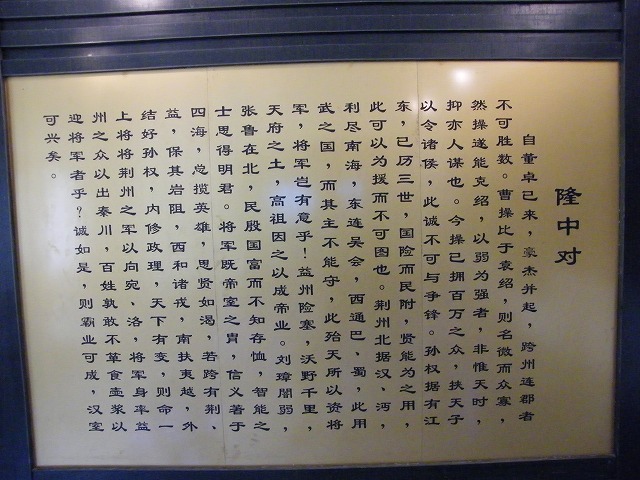 隆中对
自董卓已来，豪杰并起，跨州连郡者
不可胜数。曹操比于袁绍，则名微而众寡，
然操遂能克绍，以弱为强者，非惟天时，
抑亦人谋也。今操已拥百万之众，挟天子
以令诸侯，此诚不可与争锋。孙权据有江
东，已历三世，国险而民附，贤能为之用，
此可以为援而不可图也。荆州北据汉、沔，
利尽南海，东连吴会，西通巴、蜀，此用
武之国，而其主不能守，此殆天所以资将
军，将军岂有意乎！益州险塞，沃野千里，
天府之土，高祖因之以成帝业。刘璋闇弱，
张鲁在北，民殷国富而不知存恤，智能之
士思得明君。将军既帝室之胄，信义著于
四海，总揽英雄，思贤如渴，若跨有荆、
益，保其岩阻，西和诸戎，南抚夷越，外
结好孙权，内修政理，天下有变，则命一
上将将荆州之军以向宛、洛，将军身率益
州之众以出秦川，百姓孰敢不箪食壶浆以
迎将军者乎？诚如是，则霸业可成，汉室
可兴矣。